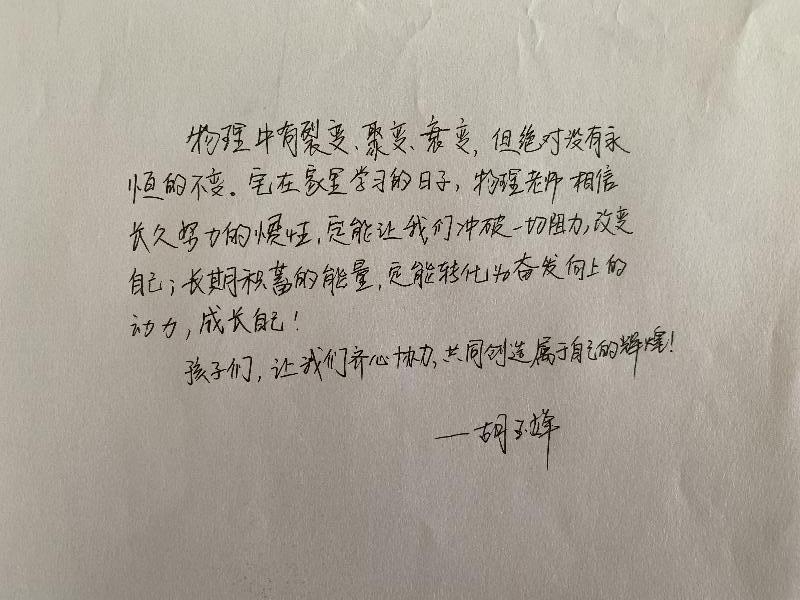 物理中有裂变、聚变、衰变，但绝对没有永
恒的不变。宅在家里学习的日子，物理老师相信
长久努力的惯性，定能让我们冲破一切阻力，改变
自己；长期积蓄的能量，定能转化为奋发向上的
动力，成长自己！
孩子们，让我们齐心协力，共同创造属于自己的辉煌！
——胡玉峰